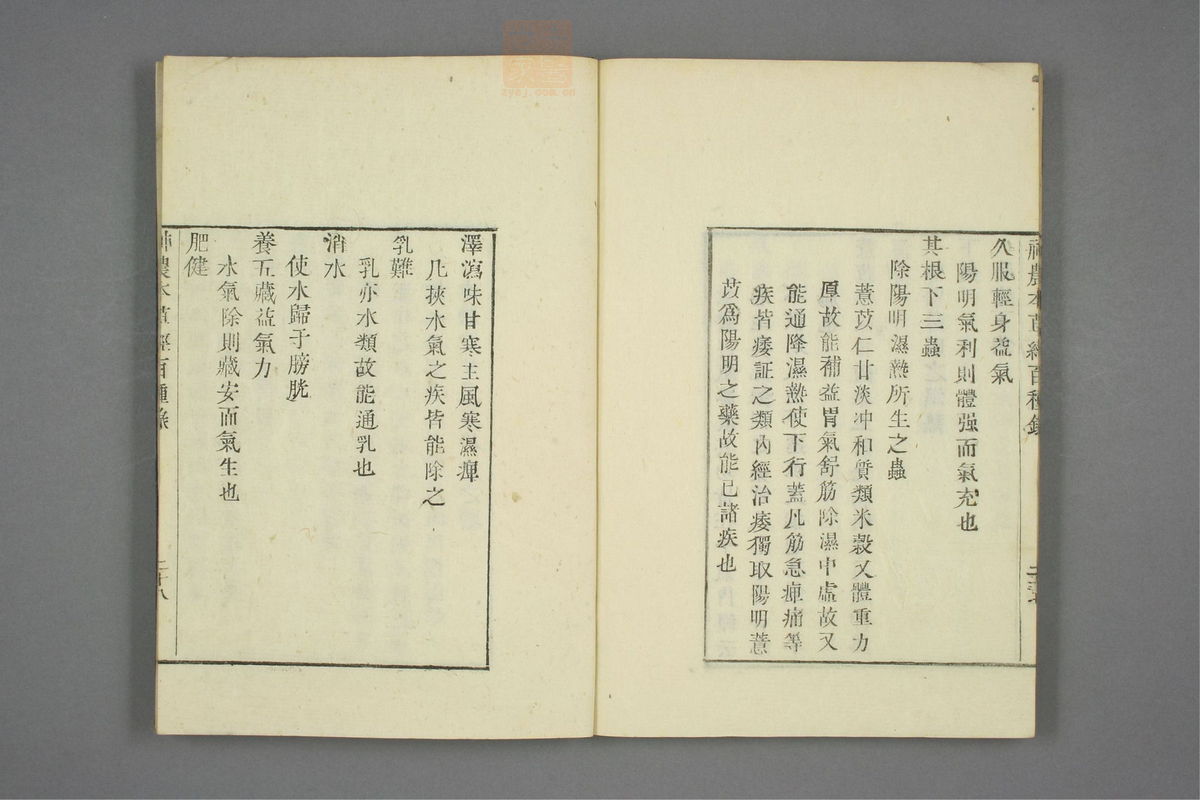 神農本草經百種錄
久服輕身益氣
陽明氣利則體强而氣充也
其根下三蟲
除陽明濕熱所生之蟲
薏苡仁甘淡冲和質類米穀又體重力
厚故能補益胃氣舒筋除濕中虛故又
能通降濕熱使下行蓋凡筋急痺痛等
疾皆痿証之類內經治痿獨取陽明薏
苡爲陽明之藥故能已諸疾也
澤瀉味甘寒主風寒濕痺
凡挾水氣之疾皆能除之
乳難
乳亦水類故能通乳也
消水
使水歸于膀胱
養五藏益氣力
水氣除則藏安而氣生也
肥健
神農本草經百種錄
二十八
zycj.com.cn